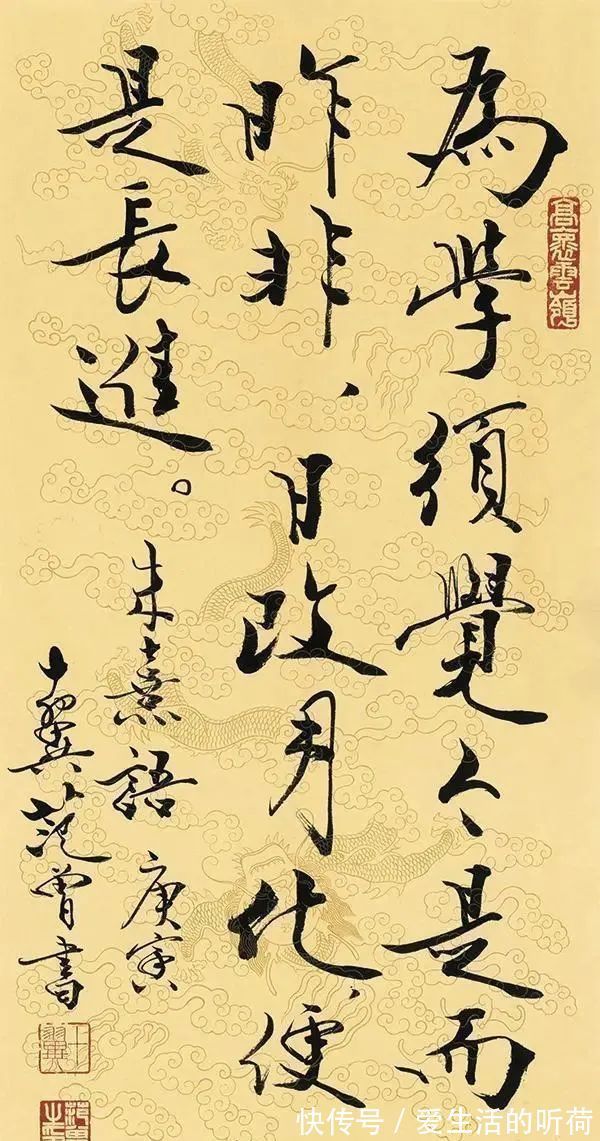 為學須覺今是而
昨非、日改月化、便
是長進。
朱熹語 庚寅
十翼范曾書
十翼
快传号 / 爱生活的听荷